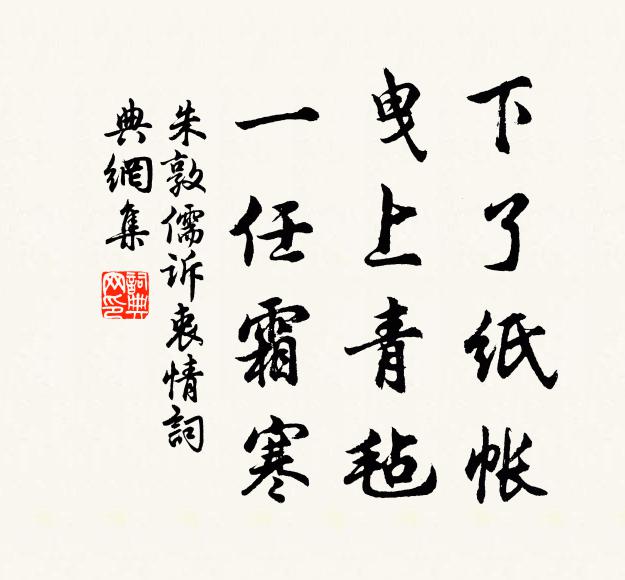 下了紙帳
曳上青毡
一任霜寒
朱敦儒诉衷情詞
典網集
詞典网印